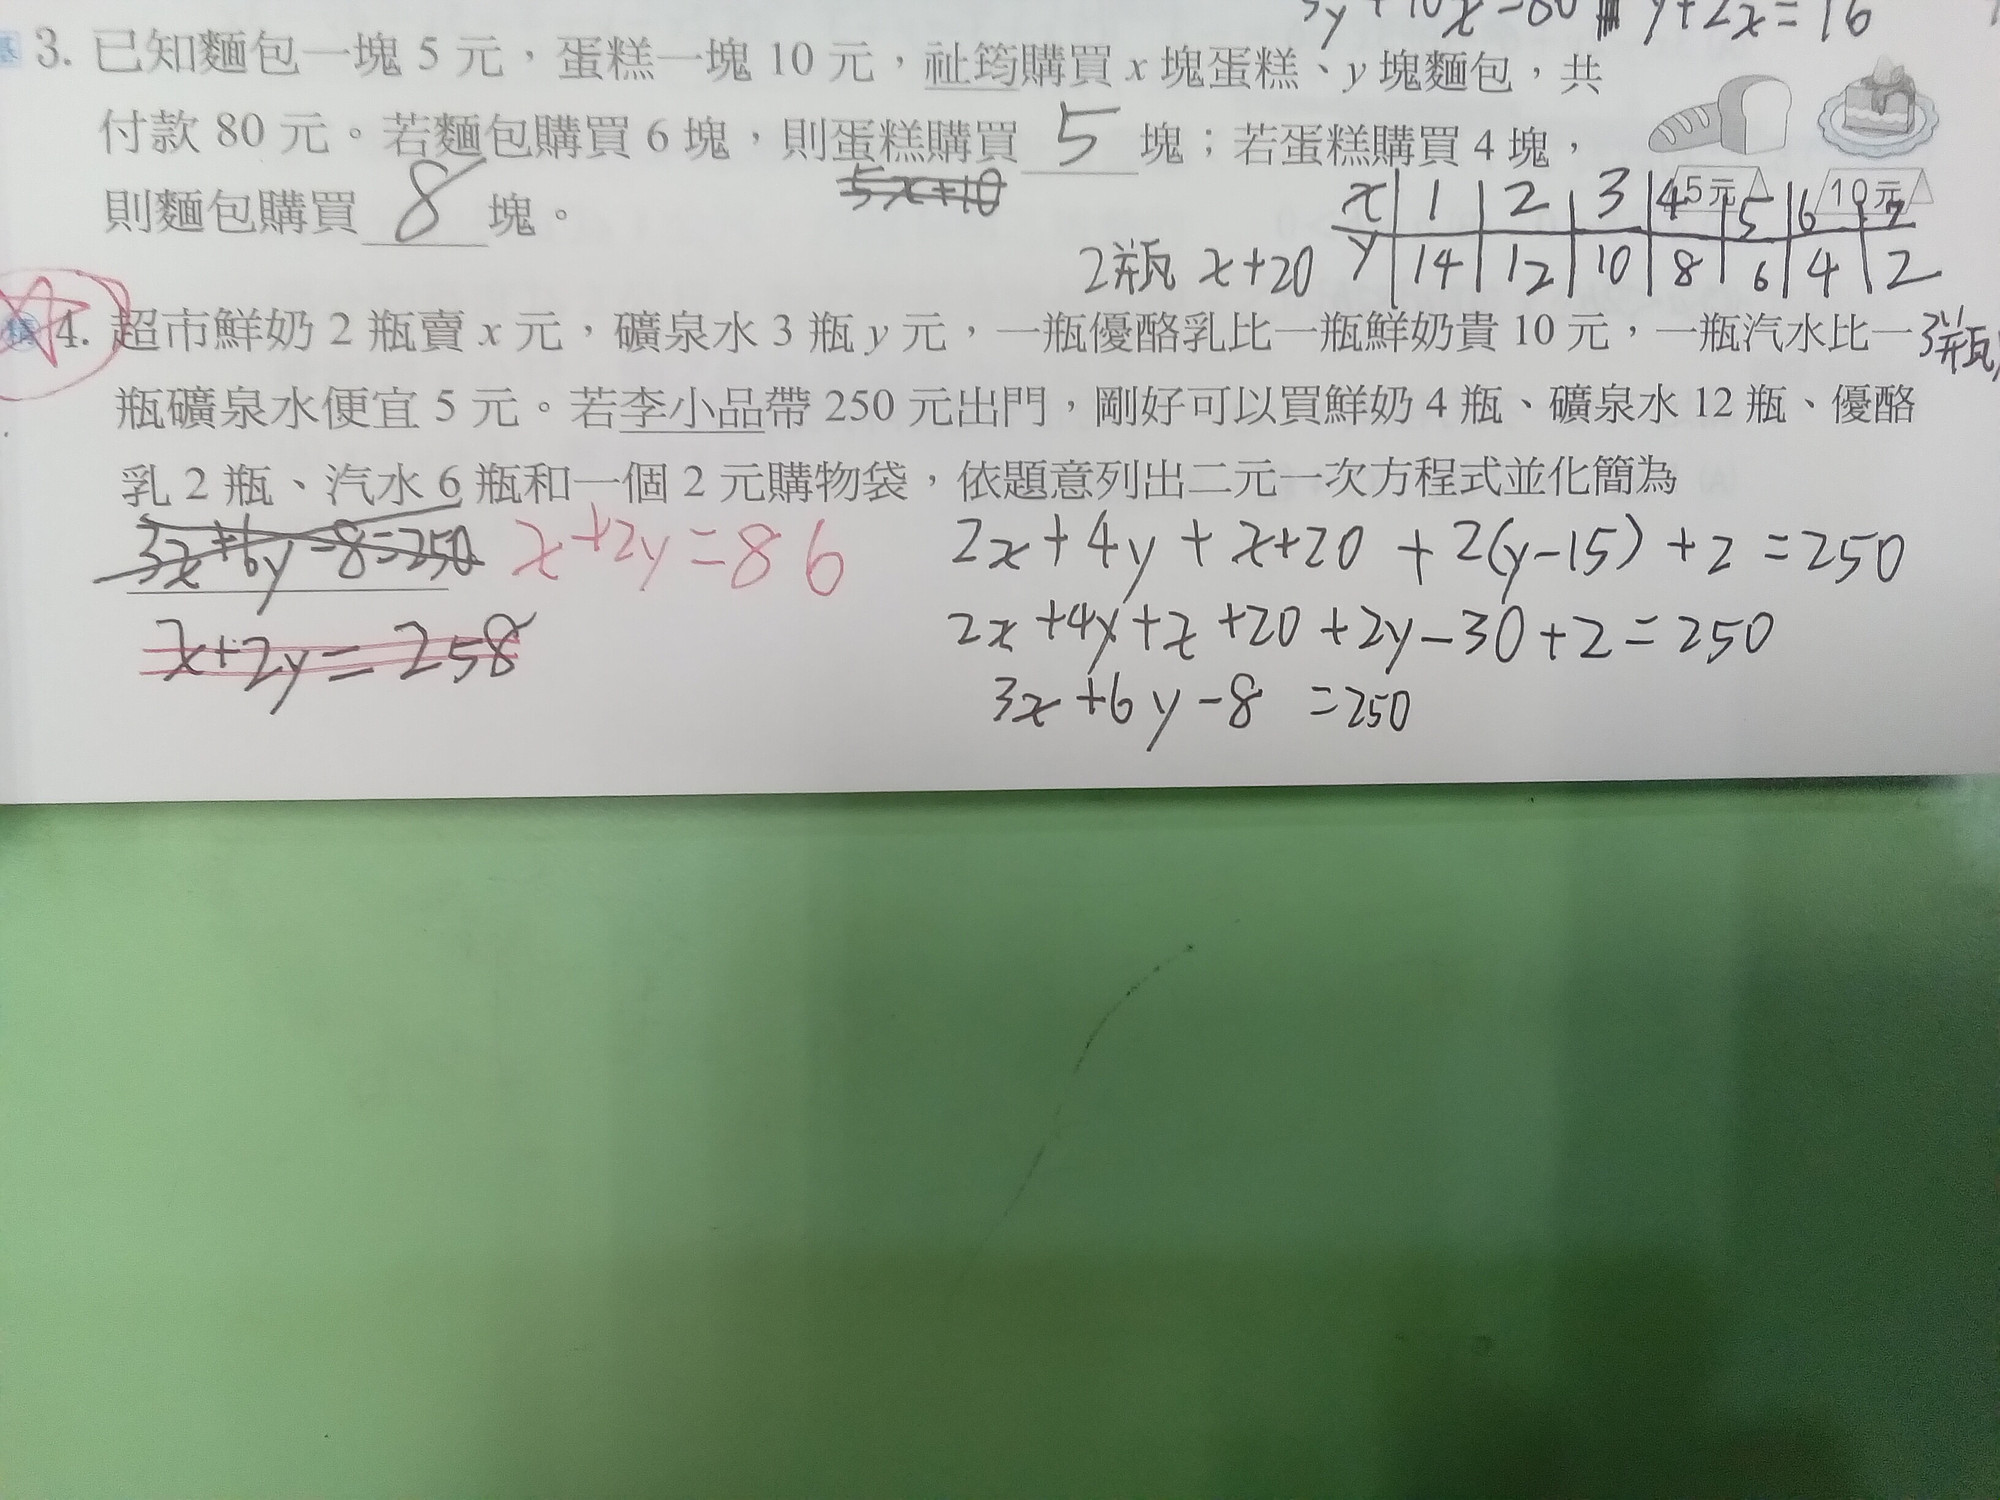 5y+10x=80 y+2x=16
3. 已知麵包一塊 5 元，蛋糕一塊 10 元，祉筠購買 x 塊蛋糕、y 塊麵包，共
付款 80 元。若麵包購買 6 塊，則蛋糕購買 5 塊；若蛋糕購買 4 塊，
5x+10
則麵包購買 8 塊。
5元 10元
x 1 2 3 4 5 6 7
y 14 12 10 8 6 4 2
2瓶 x+20
4. 超市鮮奶 2 瓶賣 x 元，礦泉水 3 瓶 y 元，一瓶優酪乳比一瓶鮮奶貴 10 元，一瓶汽水比一
3瓶
瓶礦泉水便宜 5 元。若李小品帶 250 元出門，剛好可以買鮮奶 4 瓶、礦泉水 12 瓶、優酪
乳 2 瓶、汽水 6 瓶和一個 2 元購物袋，依題意列出二元一次方程式並化簡為
3x+6y-8=250 x+2y=86
x+2y=258
2x+4y+x+20+2(y-15)+2=250
2x+4y+x+20+2y-30+2=250
3x+6y-8=250